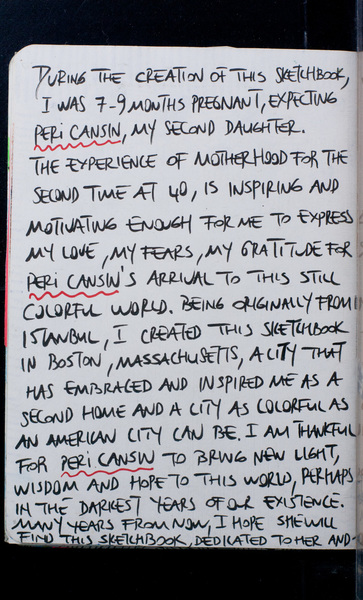 DURING THE CREATION OF THIS SKETCHBOOK,
I WAS 7-9 MONTHS PREGNANT, EXPECTING
PERi CANSIN, MY SECOND DAUGHTER.
THE EXPERIENCE OF MOTHERHOOD FOR THE
SECOND TIME AT 40, IS INSPIRING AND
MOTIVATING ENOUGH FOR ME TO EXPRESS
MY LOVE, MY FEARS, MY GRATITUDE FOR
PERi CANSIN'S ARRIVAL TO THIS STILL
COLORFUL WORLD. BEING ORIGINALLY FROM
ISTANBUL, I CREATED THIS SKETCHBOOK
IN BOSTON, MASSACHUSETTS, A CITY THAT
HAS EMBRACED AND INSPIRED ME AS A
SECOND HOME AND A CITY AS COLORFUL AS
AN AMERICAN CITY CAN BE. I AM THANKFUL
FOR PERi CANSIN TO BRING NEW LIGHT,
WISDOM AND HOPE TO THIS WORLD, PERHAPS
IN THE DARKEST YEARS OF OUR EXISTENCE.
MANY YEARS FROM NOW, I HOPE SHE WILL
FIND THIS SKETCHBOOK, DEDICATED TO HER AND-